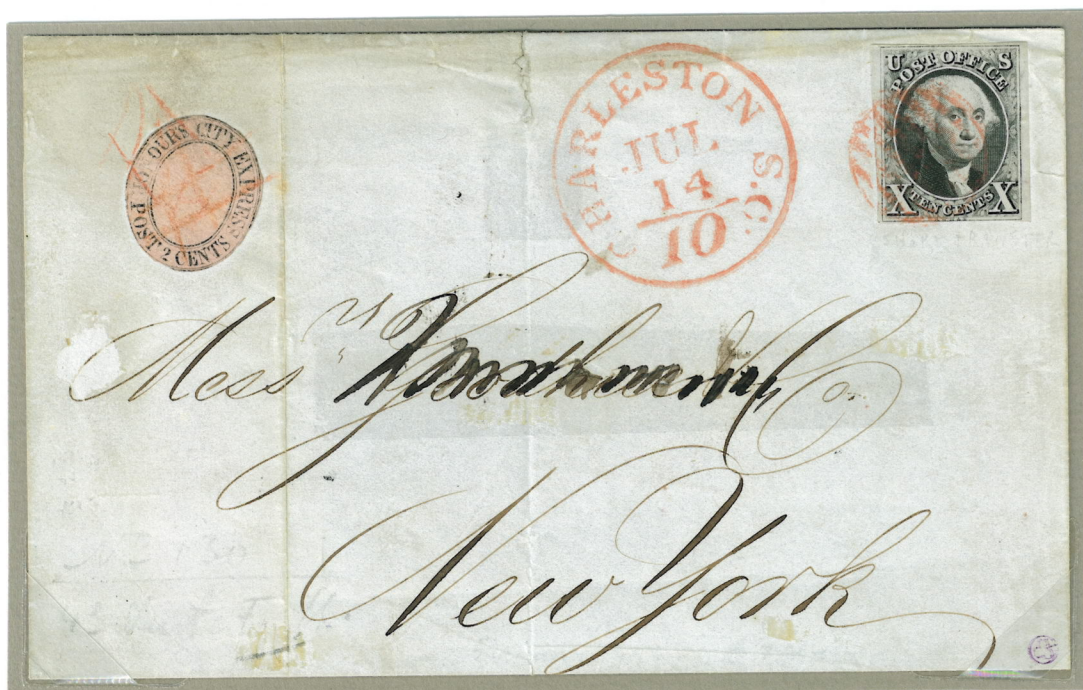 OURS CITY EXPRESS
POST 2 CENTS
CHARLESTON S.C.
JUL
14
10
U S
POST OFFICE
X TEN CENTS X
Mess rs & Co.
New York